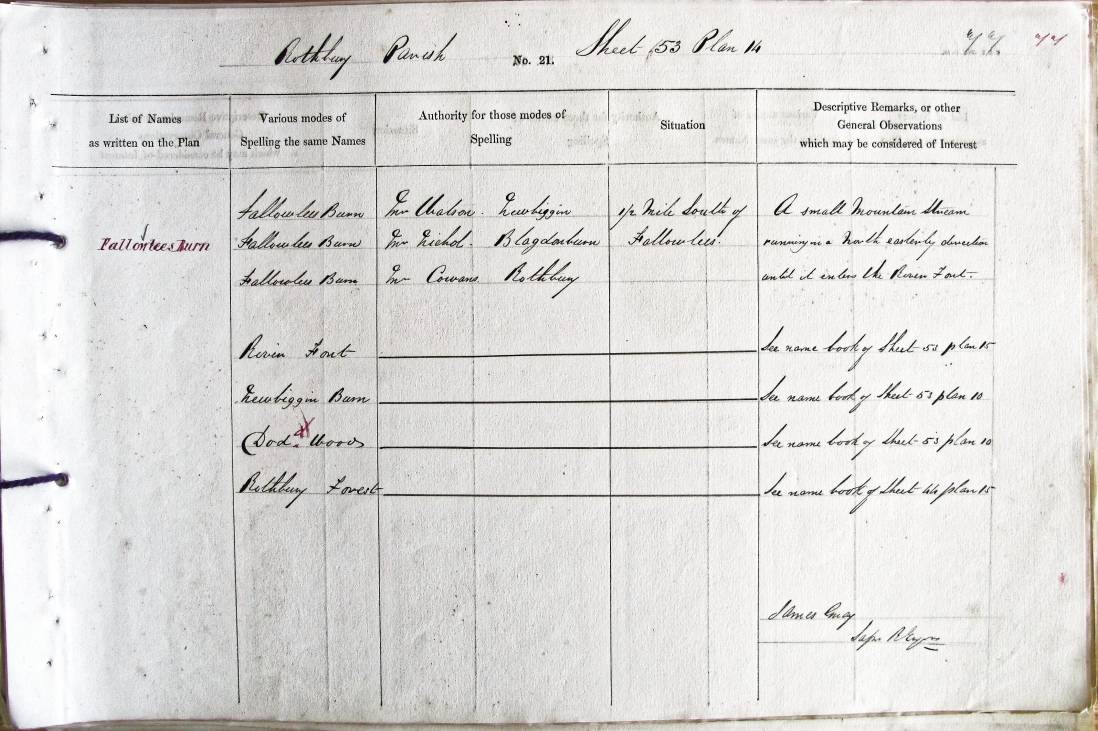 Rothbury Parish No. 21. Sheet 53 Plan 14 77 77
List of Names
as written on the Plan
Various modes of
Spelling the same Names
Authority for those modes of
Spelling
Situation
Descriptive Remarks, or other
General Observations
which may be considered of Interest
Fallowlees Burn
Fallowlees Burn Mr Watson. Newbiggin 1/2 Mile South of A small Mountain Stream
Fallowlees Burn Mr Nichol. Blagdonburn Fallowlees. running in a North easterly direction
Fallowlees Burn Mr Cowans Rothbury until it enters the River Font.
River Font See name book of Sheet 53 plan 15
Newbiggin Burn See name book of Sheet 53 plan 10
Dod Wood See name book of Sheet 53 plan 10
Rothbury Forest See name book of Sheet 44 plan 15
James
Sapr R Engrs